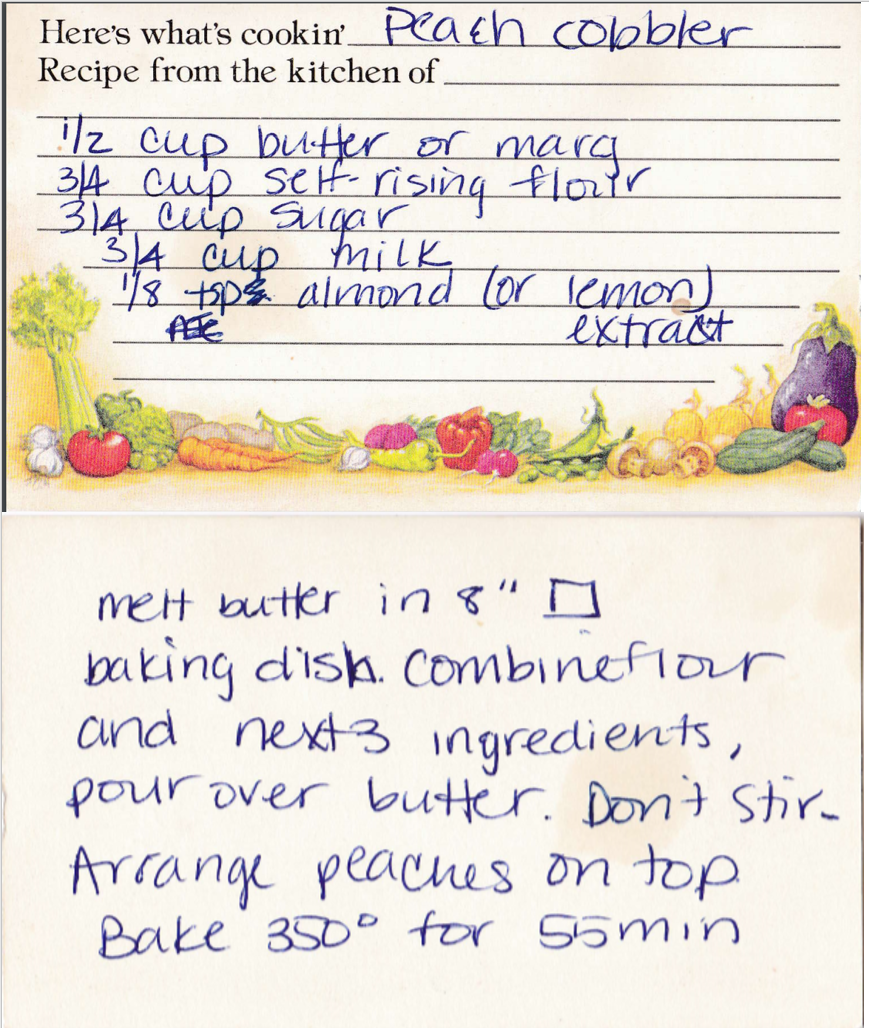 Here's what's cookin' Peach cobbler
Recipe from the kitchen of
1/2 cup butter or marg
3/4 cup self-rising flour
3/4 cup sugar
3/4 cup milk
1/8 tsp almond (or lemon)
extract
melt butter in 8"
baking dish. Combine flour
and next 3 ingredients,
pour over butter. Don't stir-
Arrange peaches on top
Bake 350° for 55 min